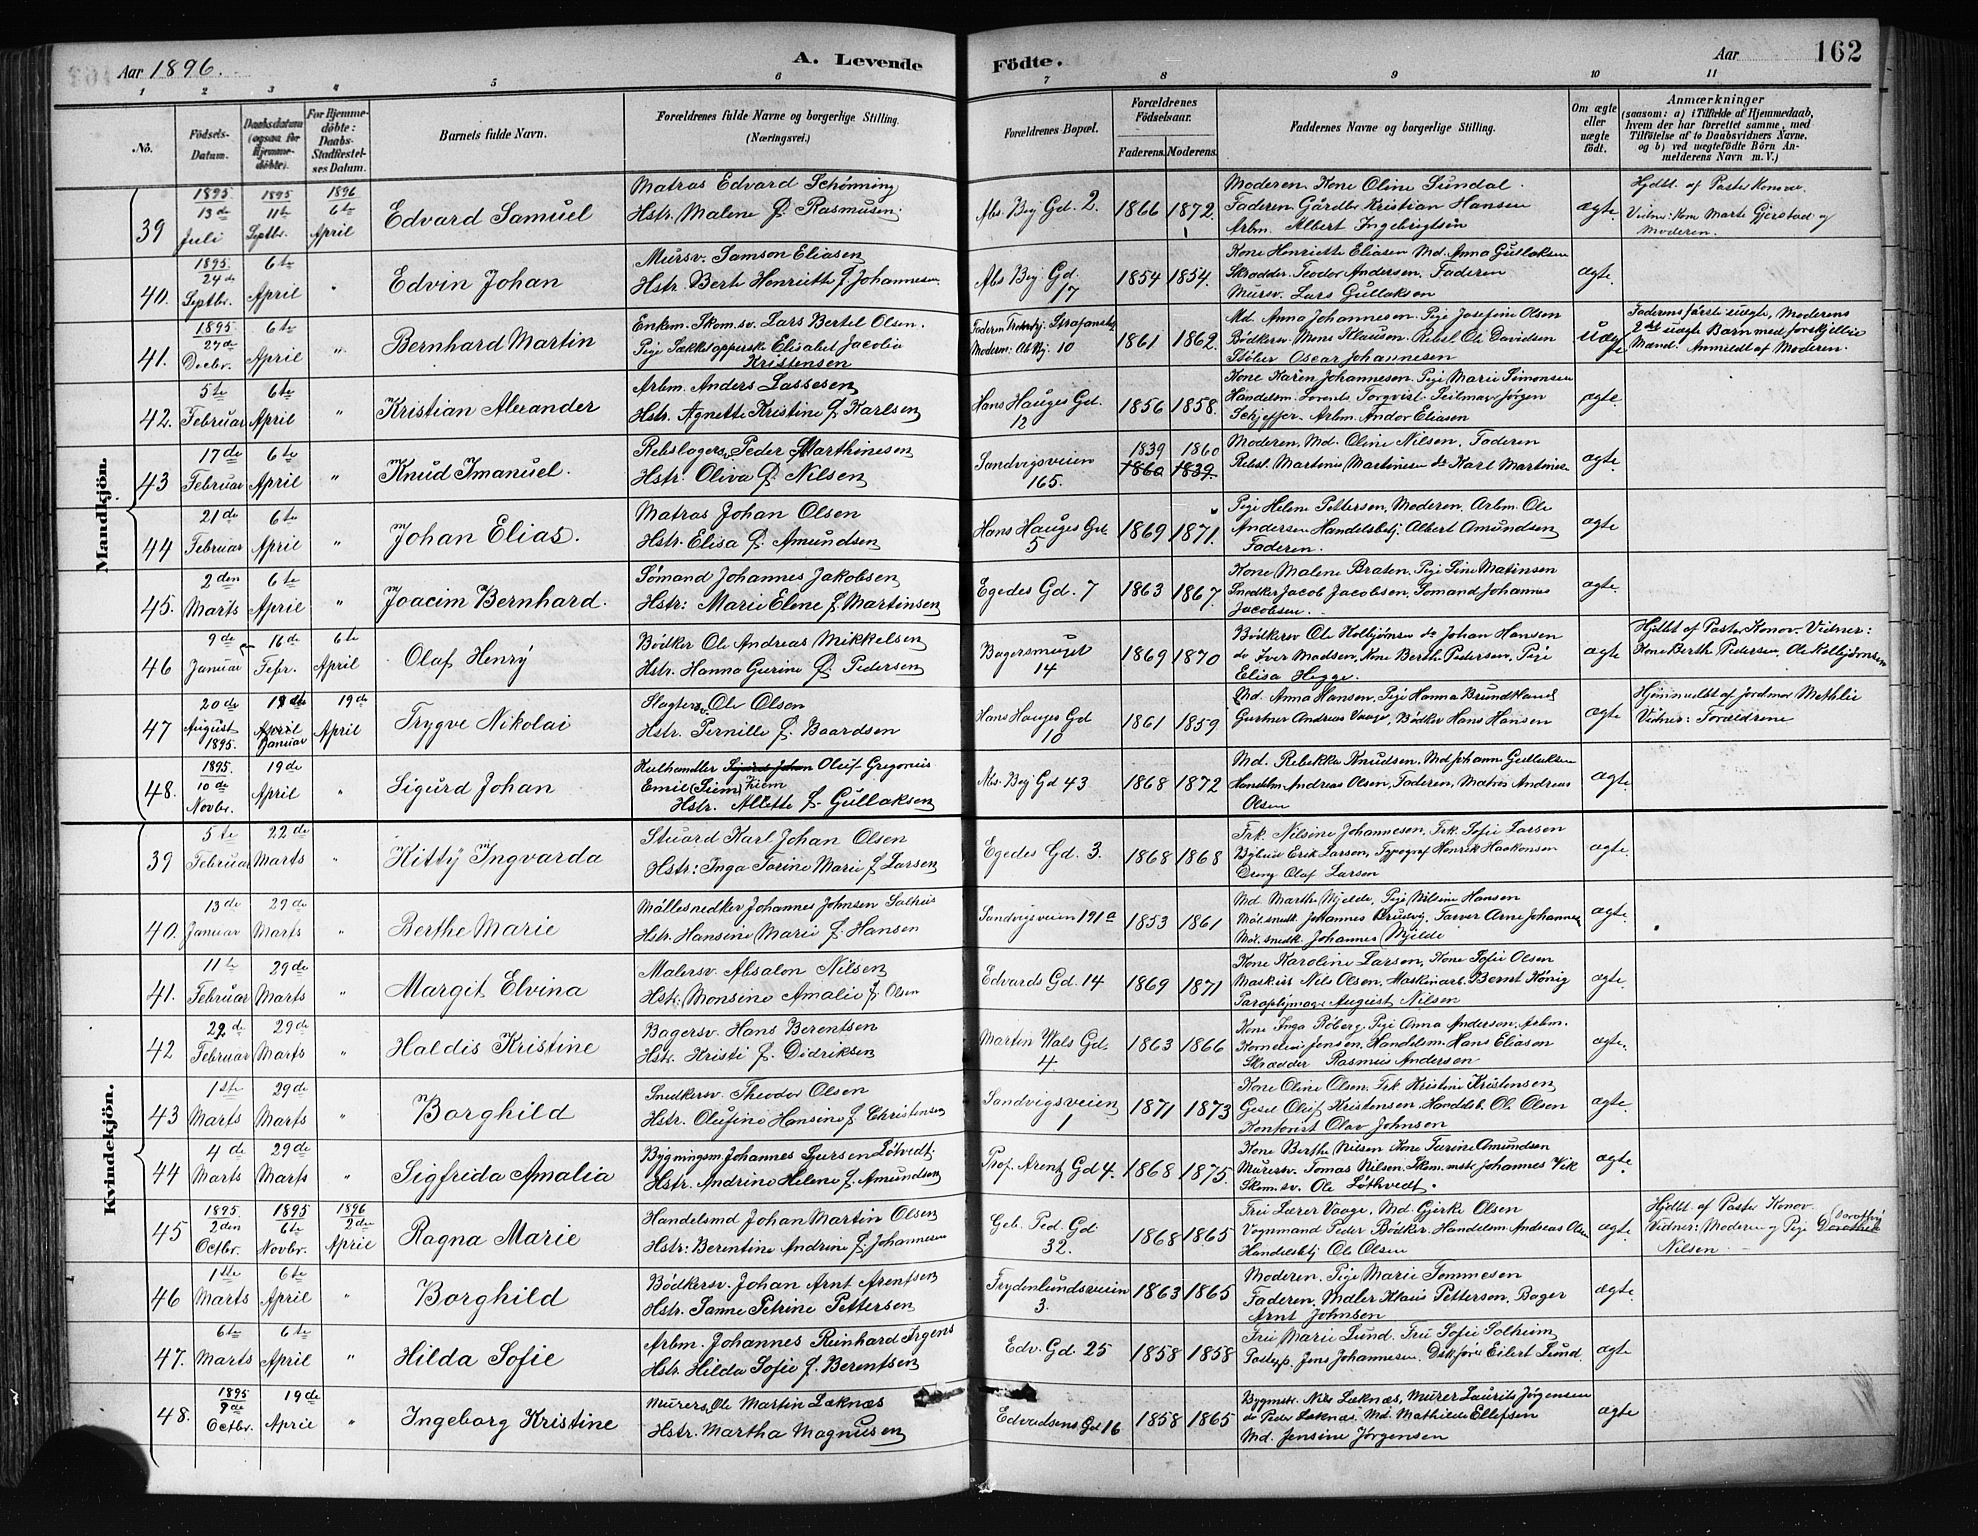 Aar 1896.
A. Levende Födte.
Aar
162
1 2 3 4 5 6 7 8 9 10 11
No.
Födsels-Datum.
Daabsdatum (ogsaa for Hjemmedöbte).
For Hjemmedöbte: Daabs-Stadfestelses Datum.
Barnets fulde Navn.
Forældrenes fulde Navne og borgerlige Stilling. (Næringsvei.)
Forældrenes Bopæl.
Forældrenes Födselsaar.
Faderens. Moderens.
Faddernes Navne og borgerlige Stilling.
Om ægte eller uægte födt.
Anmærkninger
(saasom: a) i Tilfælde af Hjemmedaab, hvem der har forrettet samme, med Tilföielse af to Daabsvidners Navne, og b) ved uægtefödte Börn Anmelderens Navn m. V.)
Mandkjön.
39 1895 13de Juli 1895 11te Septbr. 1896 6te April Edvard Samuel
Matros Edvard Schønning
Hstr. Malene f. Rasmusen.
Abs. Bej Gd. 2. 1866 1872.
Moderen. Kone Oline Sundal.
Faderen. Gårdbr Kristian Hansen
Arbm. Albert Ingebrigtsen
ægte.
Hjdbt. af Pastor Konow.
Vidner: Kone Marte Gjerstad og
Moderen.
40. 1895. 24de Septbr. 6te April " Edvin Johan
Mursv. Samson Eliasen
Hstr. Berte Henriette f. Johannesen.
Abs Bej Gd. 17 1854 1854.
Kone Henriette Eliasen Md. Anna Gullaksen
Skrædder Teodor Andersen. Faderen
Mursv. Lars Gullaksen
ægte.
41. 1895 Decbr. 6te April " Bernhard Martin
Enkem. Skom.sv. Lars Bertel Olsen.
Pige Sækkstopperske Elisabet Jacobia
Kristensen
10 1861 1862.
Md. Anna Johannesen. Pige Josefine Olsen
Bødkersv. Mons Klausen. Rebsl Ole Davidsen
Oscar Johannesen
uægte
Faderens første uægte, Moderens
2det uægte Barn med forskjellige
Mænd. Anmeldt af Moderen.
42. 5te Februar 6te April " Kristian Alexander
Arbm. Anders Lassesen
Hstr. Agnette Kristine f. Karlsen
Hans Hauges Gd. 12 1856 1858.
Kone Karen Johannesen. Pige Marie Simonsen
Handelsm. Lorents Torqvist. Seilmager Jørgen
Schjeffer. Arbm. Andor Eliasen
ægte.
43 17de Februar 6te April " Knud Imanuel.
Rebslagers. Peder Marthinesen
Hstr. Oliva f. Nilsen
Sandvigsveien 165. 1839 1860 1860 1839.
Moderen, Md. Oline Nilsen, Faderen
Rebsl. Martines Martinesen do Karl Martines
ægte.
44 21de Februar 6te April " Johan Elias.
Matros Johan Olsen
Hstr. Elisa f. Amundsen
Hans Hauges Gd 5 1869 1871.
Pige Helene Pettersen, Moderen, Arbm. Ole
Andersen Handelsbetj. Albert Amundsen
Faderen.
ægte
45. 2den Marts 6te April " Joacim Bernhard.
Sømand Johannes Jakobsen
Hstr: Marie Elene f. Martinsen
Egedes Gd. 7 1863 1867.
Kone Malene Braten. Pige Line Matinsen
Snedker Jacob Jacobsen, Sømand Johannes
Jacobsen.
ægte
46 9de Januar 16de Febr. 6te April Olaf Henry
Bødker Ole Andreas Mikkelsen
Hstr. Hanna Gurine f. Pedersen
Bagersmuget 14 1869 1870
Bødkersv Ole Kolbjørnsen do Johan Hansen
do Iver Madsen, Kone Berthe Pedersen, Pige
Elisa Higge.
ægte
Hjdbt af Pastor Konow. Vidner:
Kone Berthe Pedersen, Ole Kolbjørnsen
47 20de August 1895. April Januar 19de April Trygve Nikolai
Slagtersv Ole Olsen
Hstr. Pernille f. Baardsen
Hans Hauges Gd 10 1861 1859
Md. Anna Hansen, Pige Hanna Brundtland
Gartner Andreas Vaage, Bødker Hans Hansen
ægte
Hjemmedbt af Jordmor Mathilde
Vidner: Forældrene
48. 1895. 10de Novbr. 19de April " Sigurd Johan
Kulhandler Oluf Gregorius
Emil (Siem) Ziem
Hstr. Allette f. Gullaksen
Abs. Bej Gd 43 1868 1872
Md. Rebekka Knudsen, Md Johanne Gullaksen
Handelsm. Andreas Olsen, Faderen, Matros Andreas
Olsen
ægte
Kvindekjön.
39 5te Februar 22de Marts " Kitty Ingvarda
Stuard Karl Johan Olsen
Hstr: Inga Torine Marie f Larsen
Egedes Gd. 3. 1868 1868
Frk. Nilsine Johannesen, Frk. Sofie Larsen
Erik Larsen, Typograf Henrik Haakonsen
Olaf Larsen
ægte.
40. 13de Januar 29de Marts " Berthe Marie
Møllesnedker Johannes Johnsen Solheis
Hstr. Hansine Marie f. Hansen
Sandvigsveien 191a 1853 1861
Md Marthe Mjelde, Pige Nilsine Hansen
Møl.snedk. Johannes Farver Arne Johannes
Møl.snedk. Johannes Mjelde
ægte.
41. 11te Februar 29de Marts " Margit Elvina
Malersv. Absalon Nilsen
Hstr. Monsine Amalie f. Olsen
Edvards Gd. 14 1869 1871
Kone Karoline Larson, Kone Sofie Olsen
Maskinist Nils Olsen, Maskinarb. Bernt König
Paraplymager August Nilsen
ægte.
42 22de Februar 29de Marts " Haldis Kristine
Bagersv. Hans Berentsen
Hstr. Kristi f. Didriksen
Martin Wals Gd. 4 1863 1866
Kone Inga Røberg. Pige Anna Anderson. Arbm.
Kornelius Jensen, Handelsm. Hans Eliason
Skrædder Rasmus Andersen
ægte.
43 1ste Marts 29de Marts " Borghild
Snedkersv. Theodor Olsen
Hstr. Olufine Hansine f. Christensen
Sandvigsveien 1 1871 1873
Kone Oline Olsen, Frk Kristine Kristensen
Gesel Oluf Kristensen, Handelsb. Ole Olsen
Kontorist Olav Johnsen
ægte.
44 4de Marts 29de Marts " Sigfrida Amalia
Bygningsm. Johannes Gursen Løtvedt.
Hstr. Andrine Helene f. Amundsen
Prof. Arentz Gd 4. 1868 1875.
Kone Berthe Nilsen Kone Turine Amundsen
Murersv. Tomas Nilsen, Skm.mstr Johannes Vik
Skom.sv. Ole Løthvedt.
ægte
45 1895 2den Octbr. 1895 6te Novbr. 1896 2den April Ragna Marie
Handelsmd Johan Martin Olsen
Hstr: Berentine Andrine f. Johannesen
Geb. Ped. Gd 32. 1868 1865
Frue Lærer Vaage, Md. Gjerke Olsen
Vognmand Peder Bødker. Handelsm. Andreas Olsen
Handelsbtj Ole Olsen
ægte
Hjdbt. af Pastor Konow.
Vidner: Moderen og Pige Dorothea
Nilsen
46 1ste Marts 6te April " Borghild
Bødkersv. Johan Arnt Arentsen
Hstr. Janne Petrine Pettersen
Frydenlundsveien 3. 1863 1865
Moderen. Pige Marie Tommesen
Faderen, Møller Klaus Petterson, Bager
Arnt Johnsen
ægte.
47. 6te Marts 6te April " Hilda Sofie
Arbm. Johannes Reinhard Irgens
Hstr. Hilda Sofie f. Berentsen
Edv. Gd. 25 1858 1858
Frue Marie Lund. Frue Sofie Solheim
Jens Johannesen. Eilert Lund.
ægte
48. 1895 Octbr. 19de April " Ingeborg Kristine
Murers. Ole Martin Læknæs
Hstr. Martha Magnusen
Edvardsens Gd 16 1858 1865
Bygmstr. Nils Læknæs, Murer Laurits Jørgensen
do Peder Læknæs. Md. Mathilde Ellefsen
Md. Jensine Jørgensen
ægte